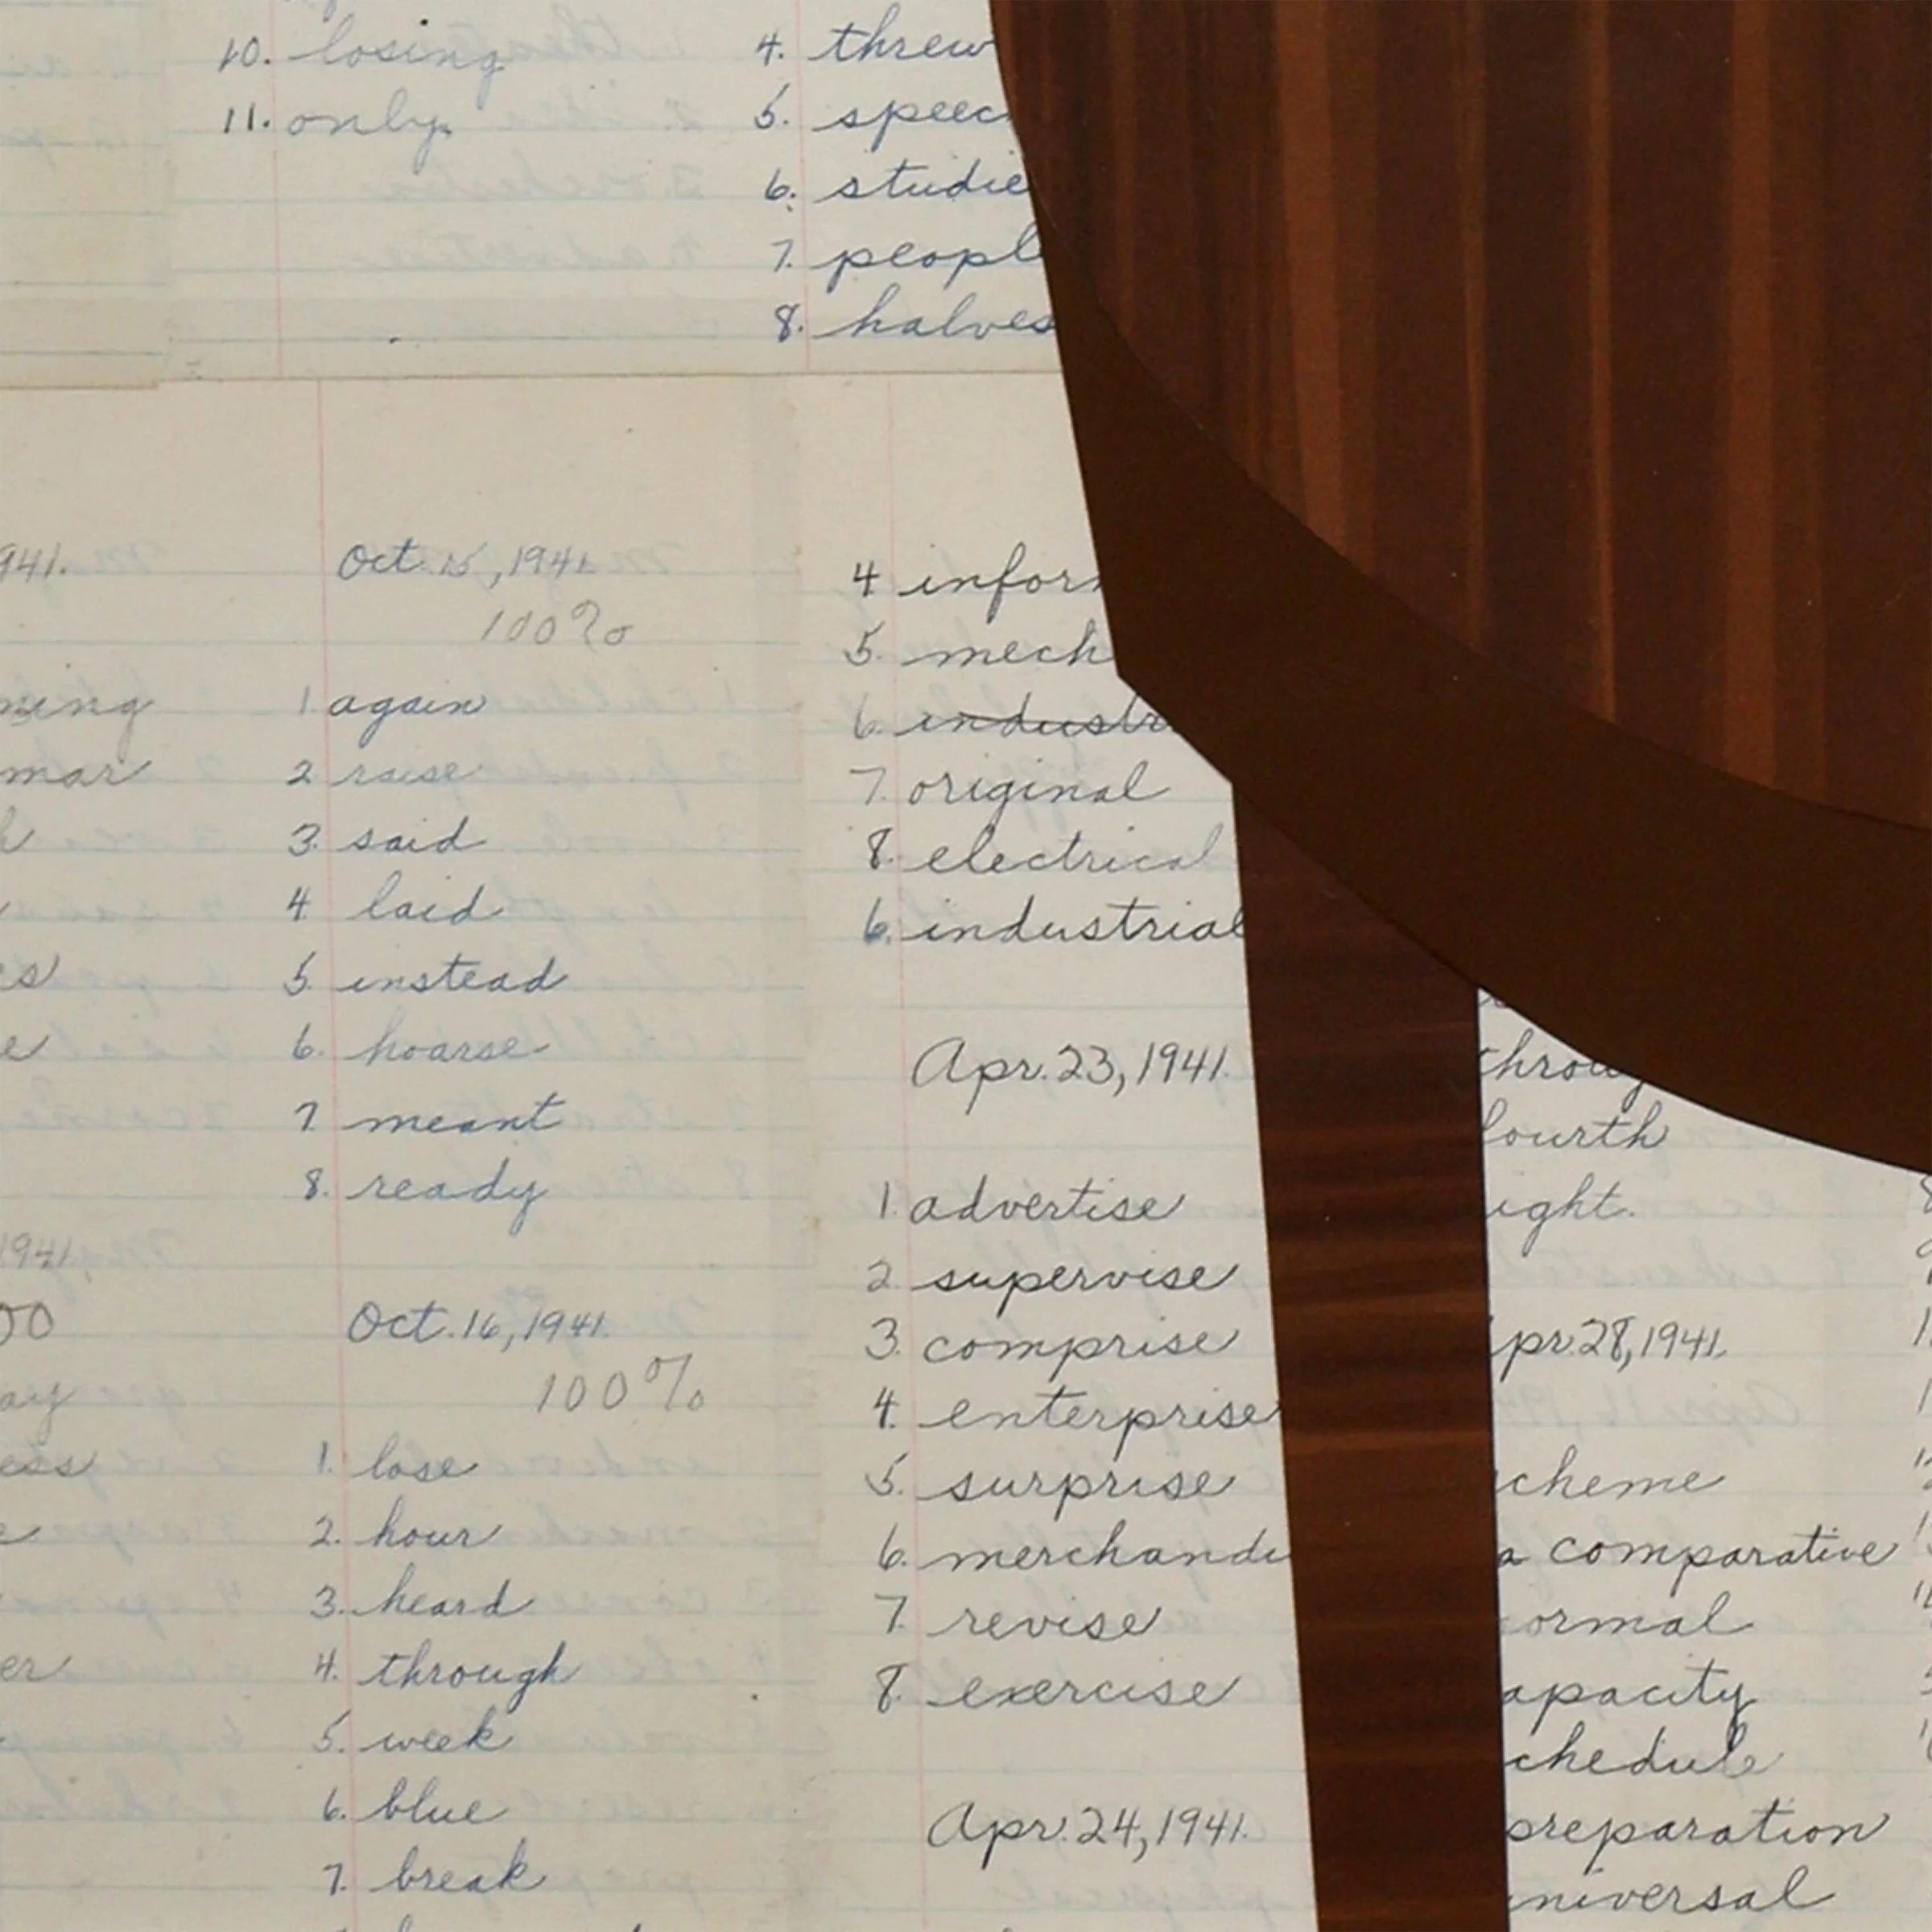 10. losing
11. only
4. threw
5. speec
6. studie
7. peopl
8. halves
941.
ning
mar
es
e
1941.
00
ay
ess
e
er
Oct. 15, 1941
100%
1. again
2 raise
3. said
4. laid
5. instead
6. hoarse
7. meant
8. ready
Oct. 16, 1941.
100%
1. lose
2. hour
3. heard
4. through
5. week
6. blue
7. break
4 infor
5. mech
6. industr
7. original
8. electrical
6. industrial
Apr. 23, 1941.
1. advertise
2. supervise
3. comprise
4. enterprise
5. surprise
6. merchandi
7. revise
8. exercise
Apr. 24, 1941.
throug
fourth
ight.
pr. 28, 1941.
cheme
a comparative
ormal
apacity
chedule
preparation
universal